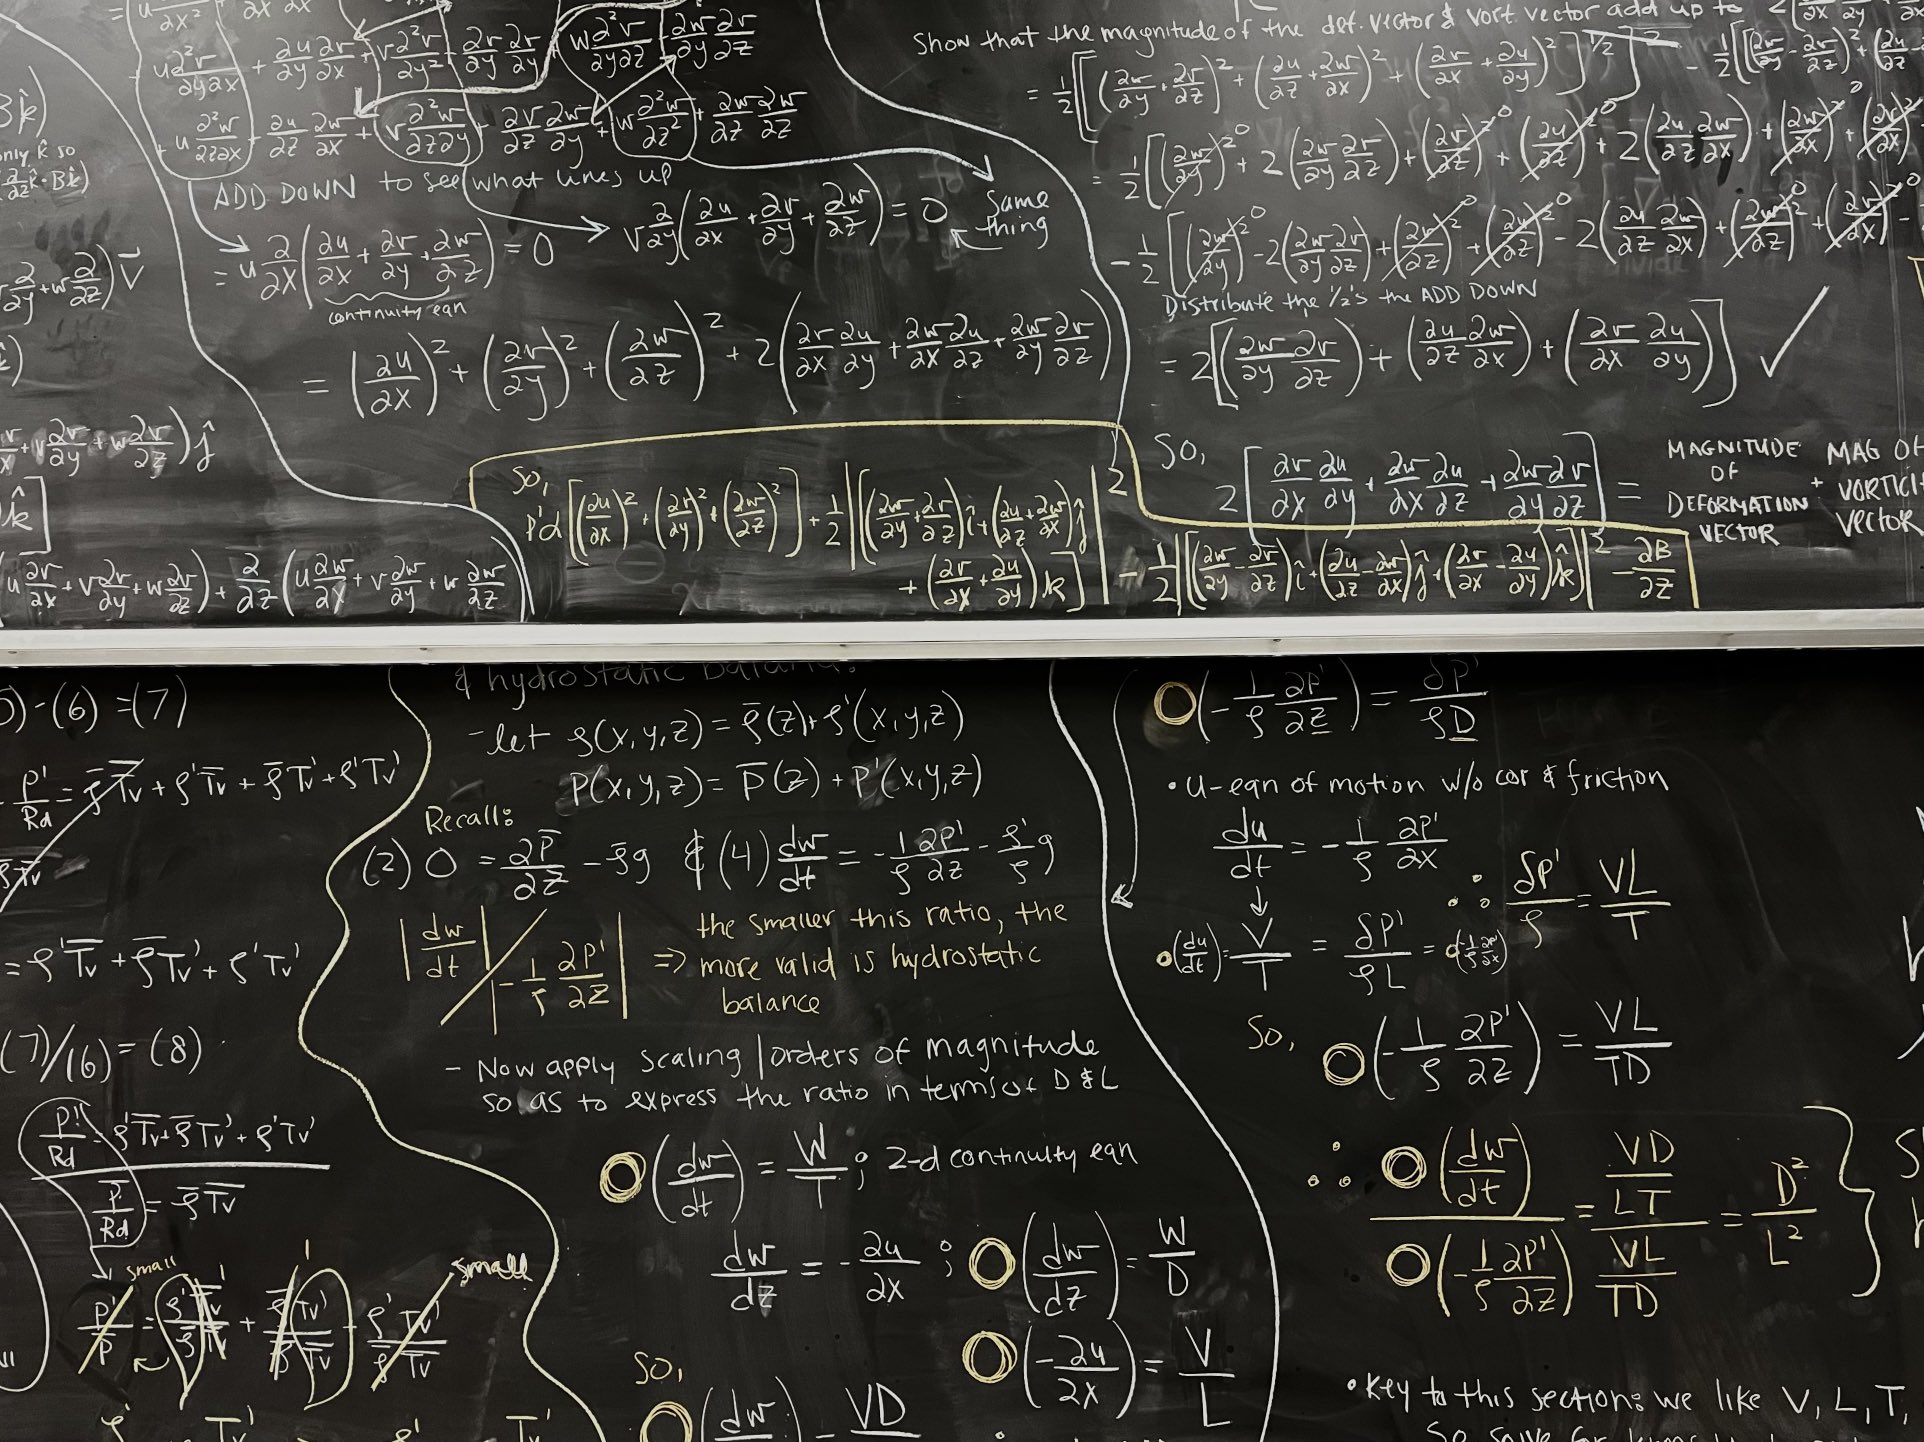 ∂²v/∂y∂x + ∂u/∂y ∂v/∂x + v ∂²v/∂y² + ∂v/∂y ∂v/∂y + w ∂²v/∂y∂z + ∂w/∂y ∂v/∂z
+ u ∂²w/∂z∂x + ∂u/∂z ∂w/∂x + v ∂²w/∂z∂y + ∂v/∂z ∂w/∂y + w ∂²w/∂z² + ∂w/∂z ∂w/∂z
ADD DOWN to see what lines up
= u ∂/∂x (∂u/∂x + ∂v/∂y + ∂w/∂z) = 0
continuity eqn
v ∂/∂y (∂u/∂x + ∂v/∂y + ∂w/∂z) = 0
Same
thing
= (∂u/∂x)² + (∂v/∂y)² + (∂w/∂z)² + 2(∂v/∂x ∂u/∂y + ∂w/∂x ∂u/∂z + ∂w/∂y ∂v/∂z)
Bk̂)
only k̂ so
(∂/∂z k̂ · Bk̂)
∂/∂y + w ∂/∂z) V⃗
+ v ∂v/∂y + w ∂v/∂z) ĵ
k̂]
(u ∂v/∂x + v ∂v/∂y + w ∂v/∂z) + ∂/∂z (u ∂w/∂x + v ∂w/∂y + w ∂w/∂z)
Show that the magnitude of the def. vector & vort. vector add up to
= 1/2 [[(∂w/∂y + ∂v/∂z)² + (∂u/∂z + ∂w/∂x)² + (∂v/∂x + ∂u/∂y)²]^1/2]² - 1/2 [[(∂w/∂y - ∂v/∂z)² + (∂u/∂z
= 1/2 [(∂w/∂y)² 0 + 2(∂w/∂y ∂v/∂z) + (∂v/∂z)² 0 + (∂u/∂z)² 0 + 2(∂u/∂z ∂w/∂x) + (∂w/∂x)² 0 + (∂v/∂x)²
- 1/2 [(∂w/∂y)² 0 - 2(∂w/∂y ∂v/∂z) + (∂v/∂z)² 0 + (∂u/∂z)² 0 - 2(∂u/∂z ∂w/∂x) + (∂w/∂z)² 0 + (∂v/∂x)² 0 -
Distribute the 1/2's the ADD DOWN
= 2[(∂w/∂y ∂v/∂z) + (∂u/∂z ∂w/∂x) + (∂v/∂x ∂u/∂y)] ✓
So, 2[∂v/∂x ∂u/∂y + ∂w/∂x ∂u/∂z + ∂w/∂y ∂v/∂z] =
MAGNITUDE
OF
DEFORMATION
VECTOR
+
MAG OF
VORTICI
Vector
So,
p'α [(∂u/∂x)² + (∂v/∂y)² + (∂w/∂z)²] + 1/2 |[(∂w/∂y + ∂v/∂z) î + (∂u/∂z + ∂w/∂x) ĵ
+ (∂v/∂x + ∂u/∂y) k]|² - 1/2 |[(∂w/∂y - ∂v/∂z) î + (∂u/∂z - ∂w/∂x) ĵ + (∂v/∂x - ∂u/∂y) k̂]|² - ∂B/∂z
) - (6) = (7)
P'/Rd = ρ̄T̄v + ρ'T̄v + ρ̄Tv' + ρ'Tv'
ρ̄T̄v
= ρ'T̄v + ρ̄Tv' + ρ'Tv'
(7)/(6) = (8)
P'/Rd = ρ'T̄v + ρ̄Tv' + ρ'Tv'
P̄/Rd = ρ̄T̄v
small
1
1
small
P'/P̄ = ρ'T̄v/ρ̄T̄v + ρ̄Tv'/ρ̄T̄v + ρ'Tv'/ρ̄T̄v
& hydrostatic balance:
- let ρ(x,y,z) = ρ̄(z) + ρ'(x,y,z)
P(x,y,z) = P̄(z) + P'(x,y,z)
Recall:
(2) 0 = ∂P̄/∂z - ρ̄g & (4) dw/dt = -1/ρ ∂P'/∂z - ρ'/ρ g
|dw/dt| / |-1/ρ ∂P'/∂z| ⇒ the smaller this ratio, the
more valid is hydrostatic
balance
- Now apply scaling/orders of magnitude
so as to express the ratio in terms of D & L
O(dw/dt) = W/T ; 2-d continuity eqn
dw/dz = -∂u/∂x ; O(dw/dz) = W/D
O(-∂u/∂x) = V/L
So,
O(dw = VD
O(-1/ρ ∂P'/∂z) = δP'/ρD
• U-eqn of motion w/o cor & friction
du/dt = -1/ρ ∂P'/∂x
↓
O(du/dt) = V/T = δP'/ρL = O(-1/ρ ∂P'/∂x)
∴ δP'/ρ = VL/T
So, O(-1/ρ ∂P'/∂z) = VL/TD
∴ O(dw/dt) / O(-1/ρ ∂P'/∂z) = (VD/LT) / (VL/TD) = D²/L² }
• Key to this section: we like V, L, T,
So solve for